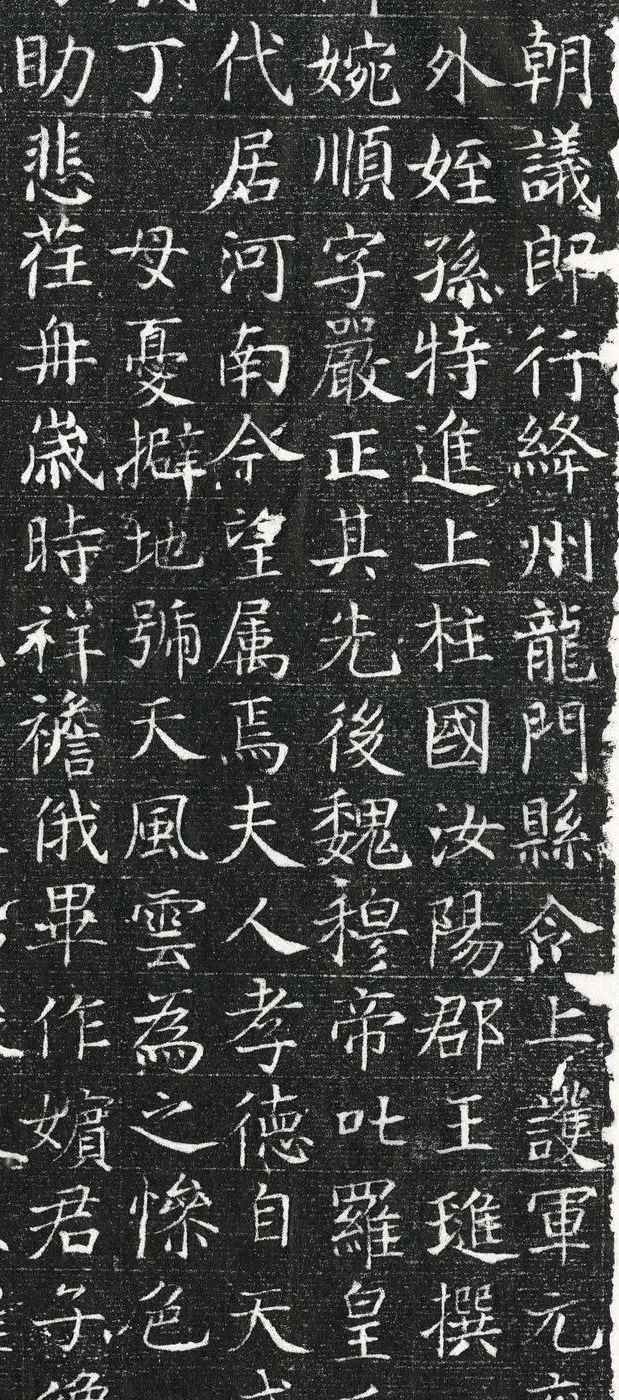 朝議郎行絳州龍門縣令上護軍元
外姪孫特進上柱國汝陽郡王璡撰
婉順字嚴正其先後魏穆帝叱羅皇
代居河南令望属焉夫人孝德自天
丁 母憂擗地號天風雲為之慘色
助悲荏冉歲時祥襜俄畢作嬪君子